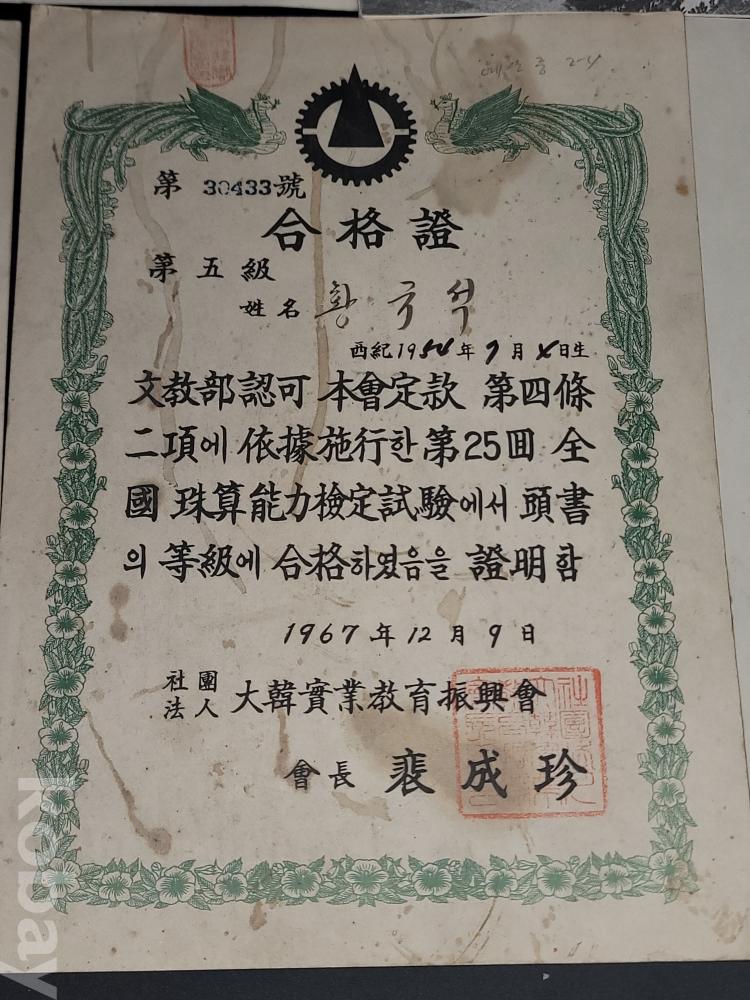 第 30433號
合格證
第五級
姓名 황규석
西紀1954年 9月 4日生
文教部認可 本會定款 第四條
二項에 依據施行한 第25回 全
國 珠算能力檢定試驗에서 頭書
의 等級에 合格하였음을 證明함
1967年 12月 9日
社團法人 大韓實業教育振興會
會長 裵成珍
Kobay